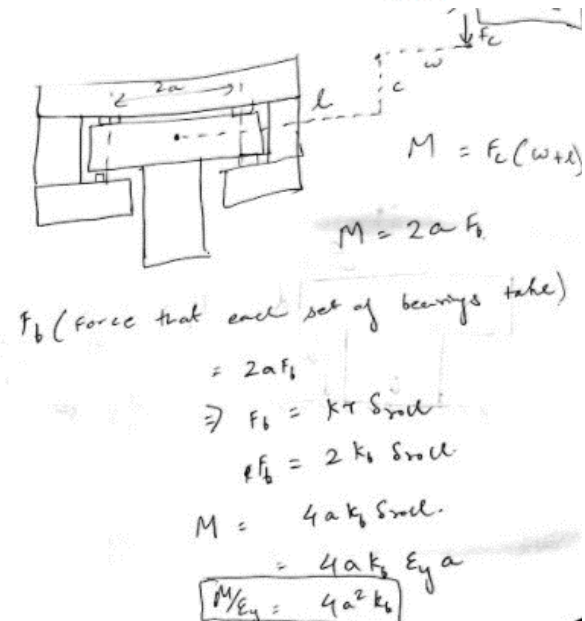 Fc
2a
w
l
c
M = Fc (w+l)
M = 2a Fb
Fb (Force that each set of bearings take)
= 2aFb
⇒ Fb = kT δroll
Fb = 2 kb δroll
M = 4a kb δroll.
= 4a kb εy a
M/εy = 4a² kb